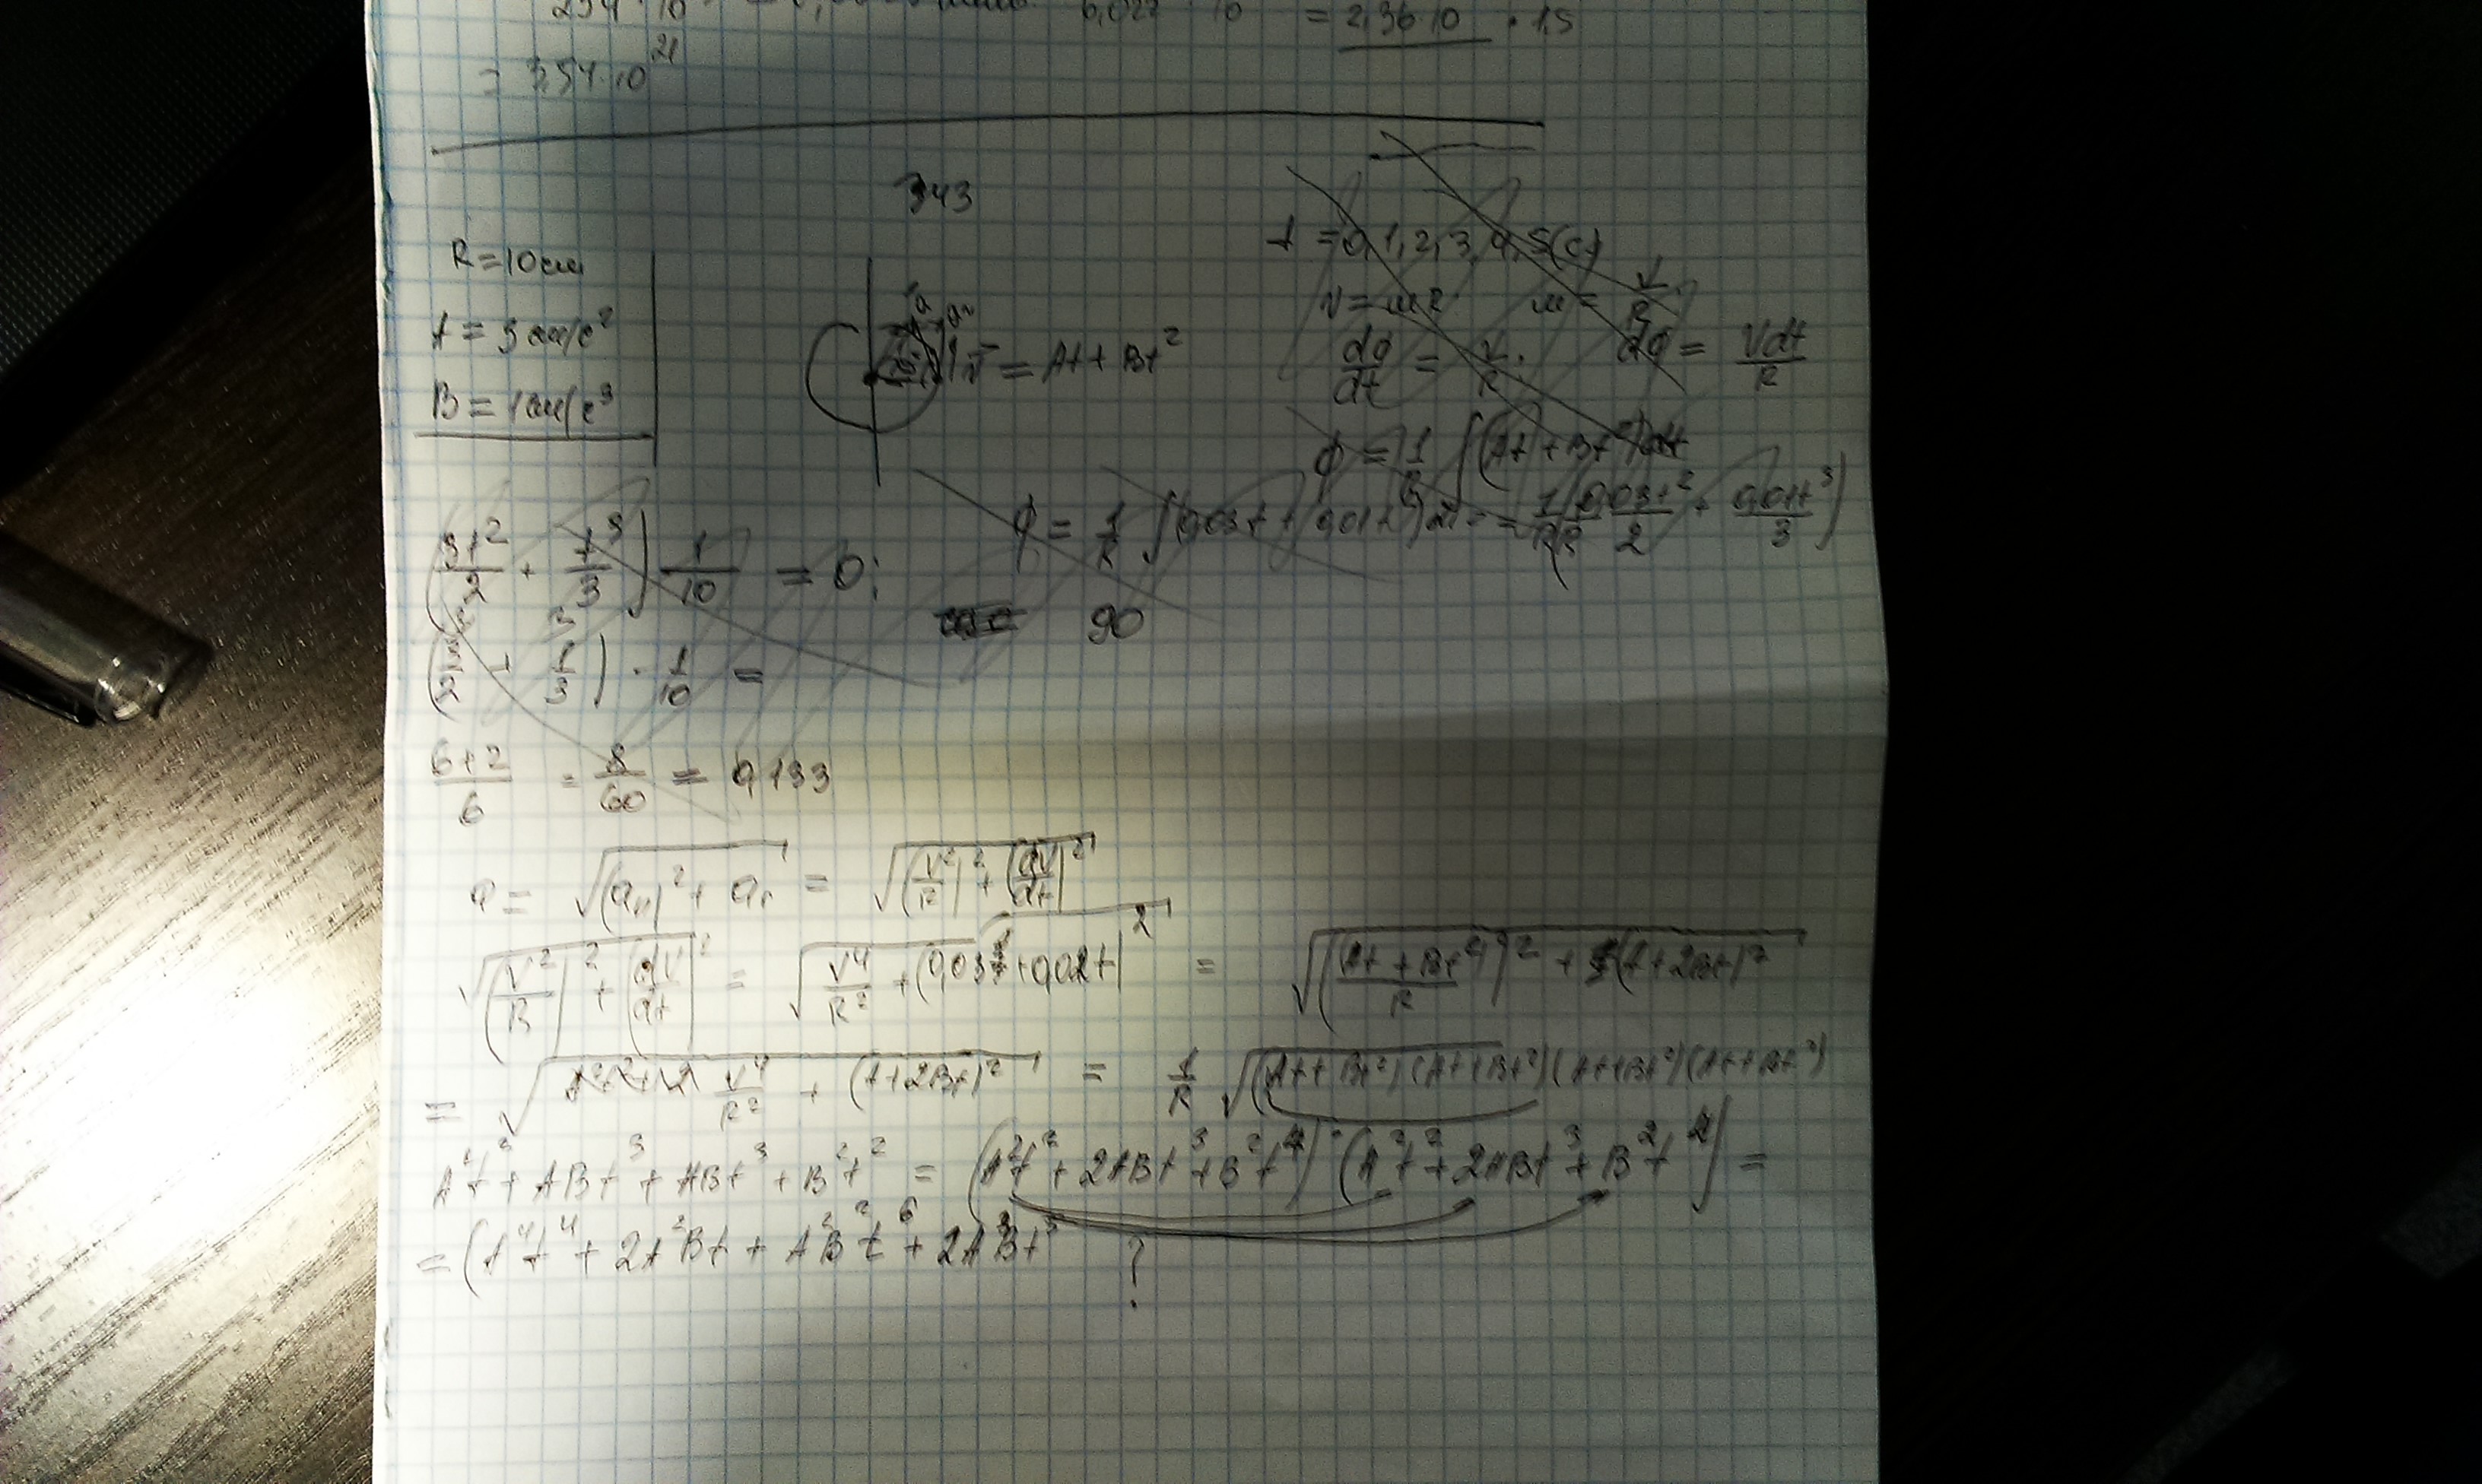 = 2,36·10 · 1,5
= 3,54·10^21
343
R = 10 см
A = 3 см/с^2
B = 1 см/с^3
v = At + Bt^2
t = 0, 1, 2, 3, 4, 5 (c)
v = ωR ω = v/R
dφ/dt = v/R; dφ = Vdt/R
φ = 1/R ∫(At + Bt^2)dt
φ = 1/R ∫(0,03t + 0,01t^2)dt = 1/R (0,03t^2/2 + 0,01t^3/3)
(3t^2/2 + t^3/3) 1/10 = 0;
90
· 1/10 =
6+2/6 = 8/60 = 0,133
a = √((a_n)^2 + a_τ) = √((V^2/R)^2 + (dV/dt)^2)
√((V^2/R)^2 + (dV/dt)^2) = √(V^4/R^2 + (0,03 + 0,02t)^2) = √(((At + Bt^2)^2/R)^2 + (A + 2Bt)^2)
= √(V^4/R^2 + (A + 2Bt)^2) = 1/R √((At + Bt^2)(At + Bt^2)(At + Bt^2)(At + Bt^2)
A^2t^2 + ABt^3 + ABt^3 + B^2t^2 = (A^2t^2 + 2ABt^3 + B^2t^4) · (A^2t^2 + 2ABt^3 + B^2t^4) =
= (A^4t^4 + 2A^2Bt + A^2B^2t^6 + 2A^3Bt^5 ?